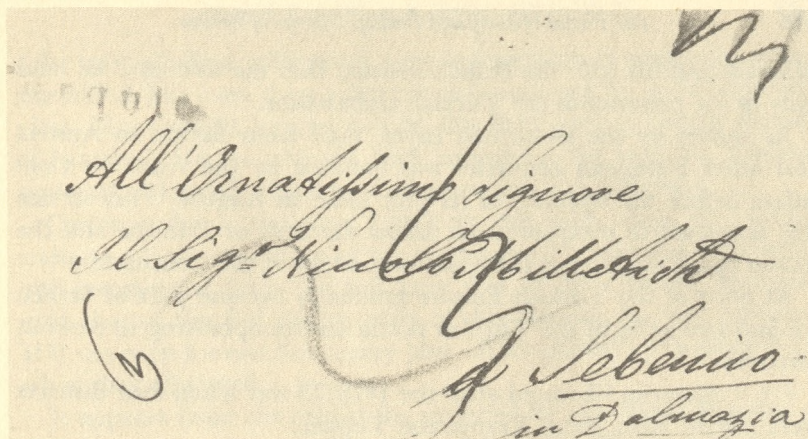 All'Ornatissimo Signore
Il Sigr. Niccolò
a Sebenico
in Dalmazia
3